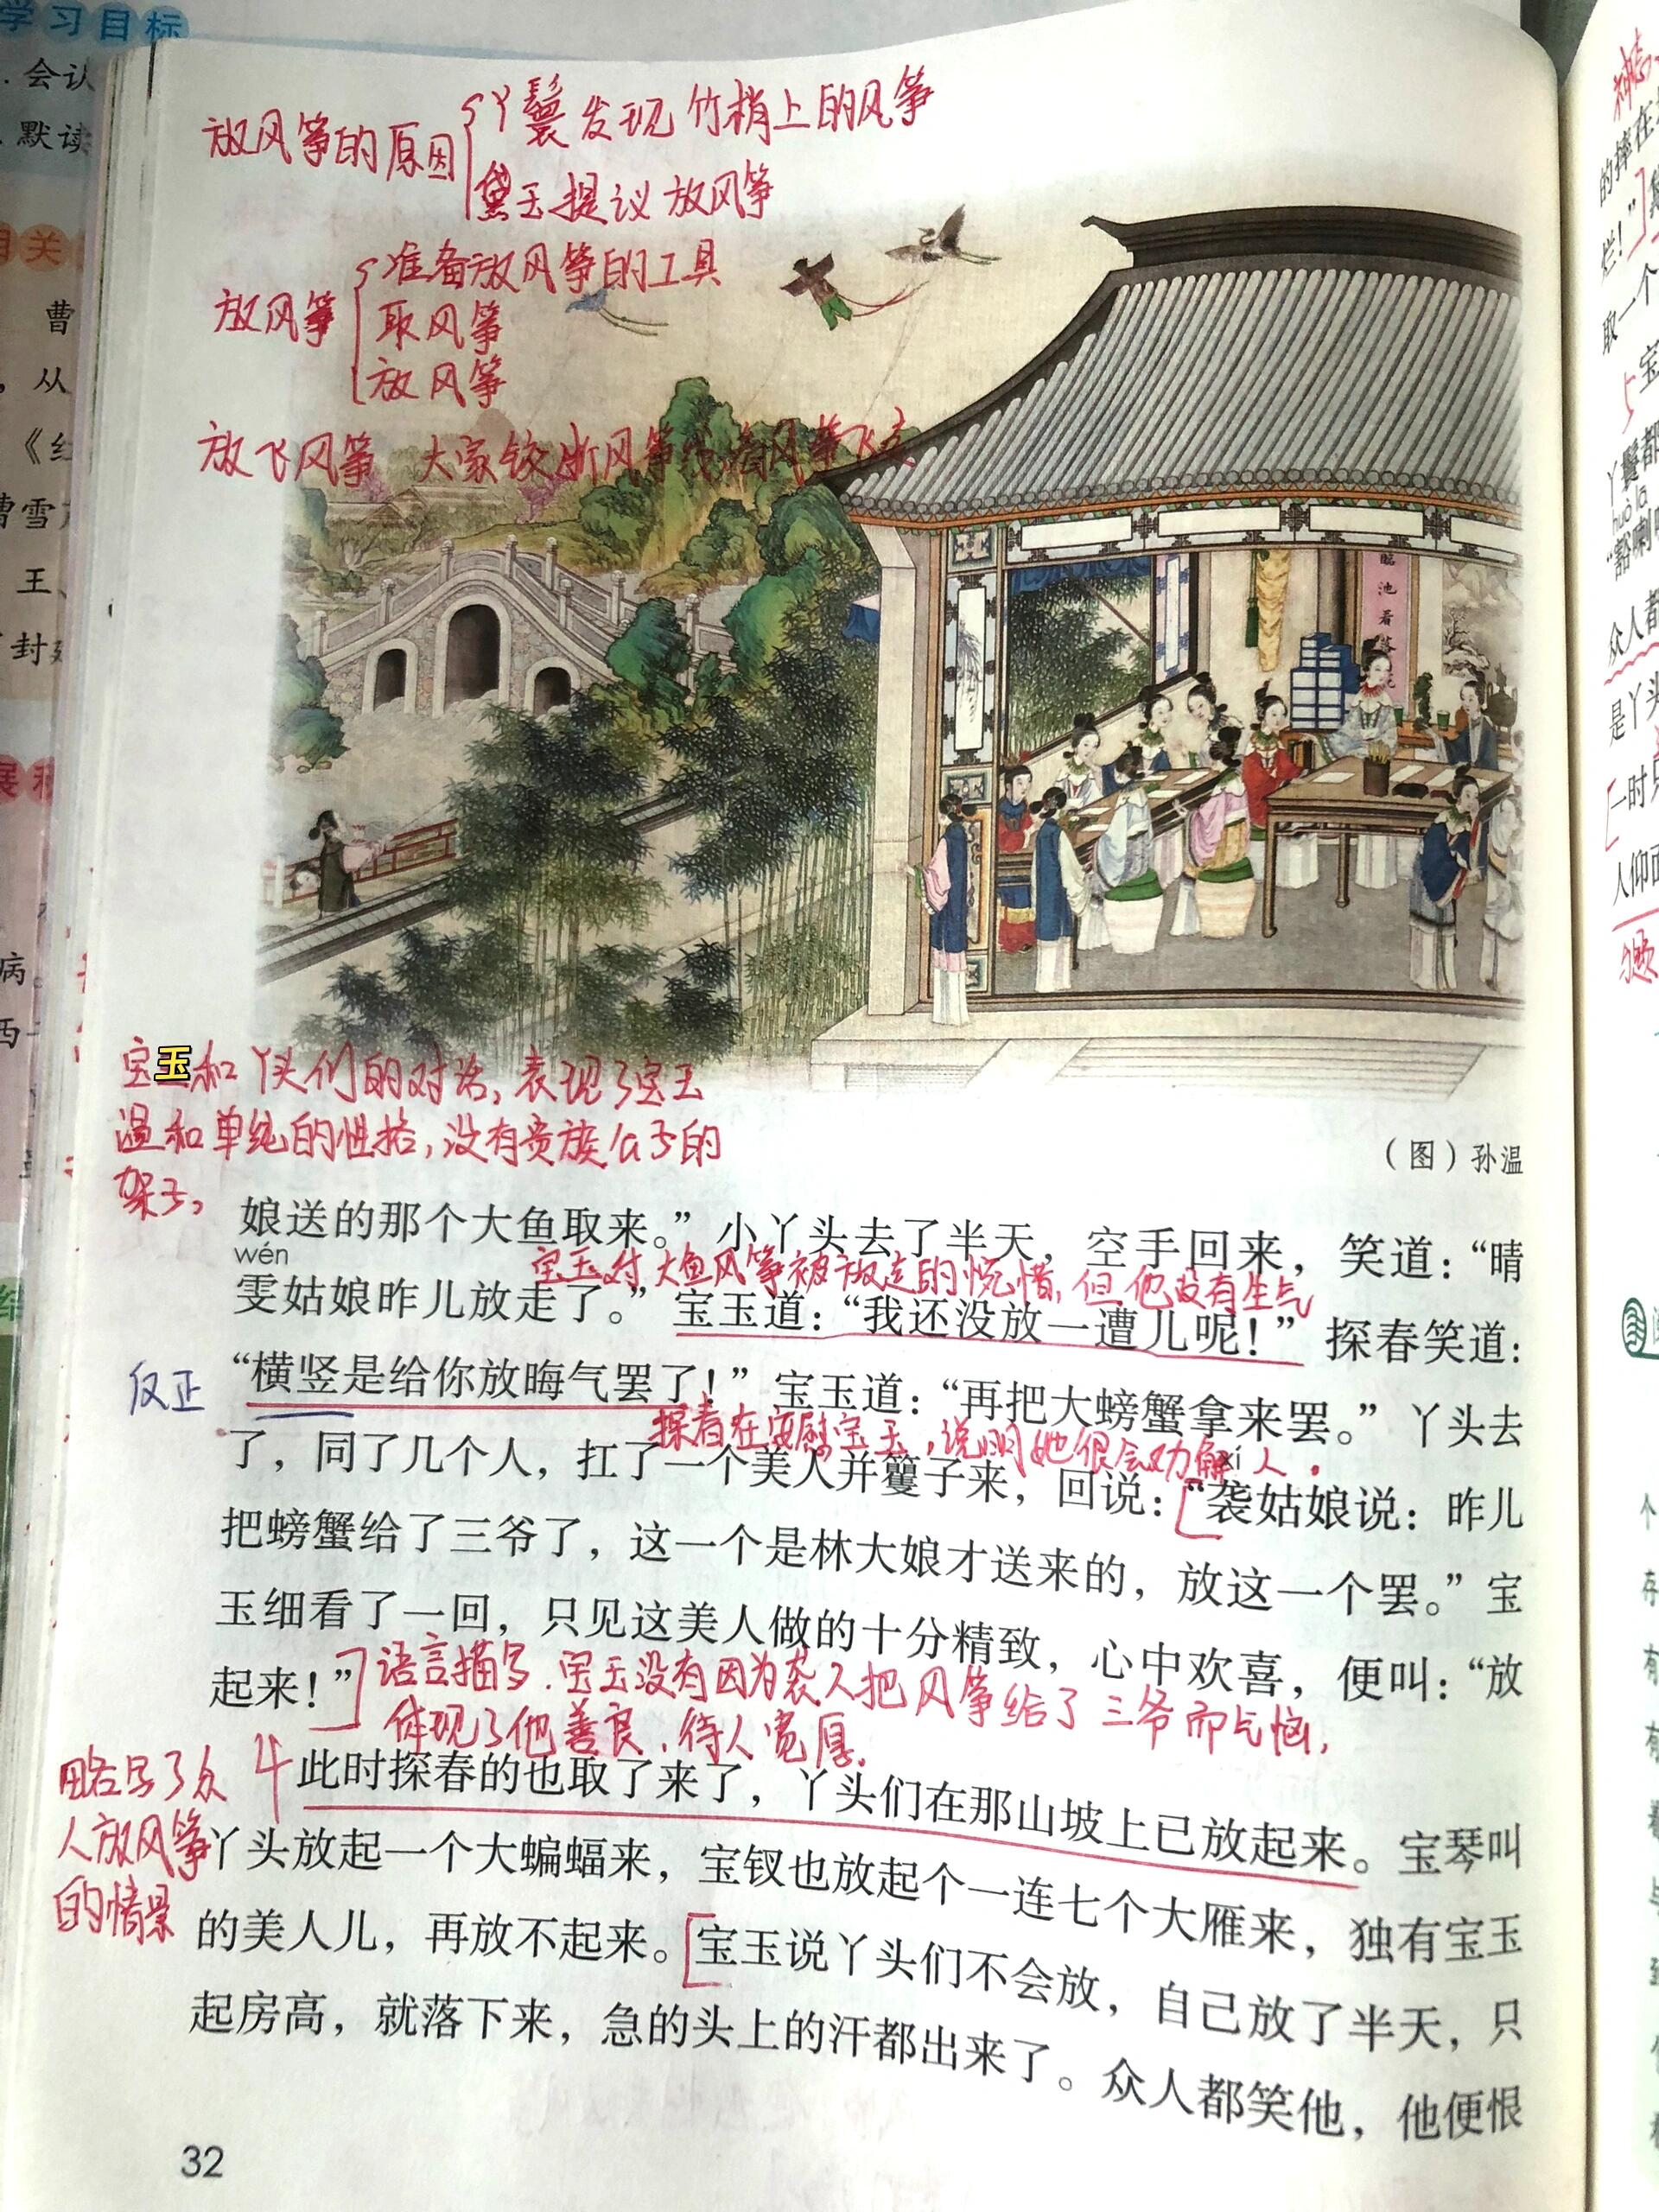 学习目标
会认
默读
放风筝的原因
丫鬟发现竹梢上的风筝
黛玉提议放风筝
放风筝
准备放风筝的工具
取风筝
放风筝
放飞风筝 大家铰断风筝线,看风筝飞走
临池看
宝玉和丫头们的对话,表现了宝玉
温和单纯的性格,没有贵族公子的
架子。
(图)孙温
娘送的那个大鱼取来。”小丫头去了半天,空手回来,笑道:“晴
wén
宝玉对大鱼风筝被放走的惋惜,但他没有生气
雯姑娘昨儿放走了。”宝玉道:“我还没放一遭儿呢!”探春笑道:
反正
“横竖是给你放晦气罢了!”宝玉道:“再把大螃蟹拿来罢。”丫头去
探春在安慰宝玉,说明她很会劝解人。
xí
了,同了几个人,扛了一个美人并籰子来,回说:“袭姑娘说:昨儿
把螃蟹给了三爷了,这一个是林大娘才送来的,放这一个罢。”宝
玉细看了一回,只见这美人做的十分精致,心中欢喜,便叫:“放
起来!”
语言描写.宝玉没有因为袭人把风筝给了三爷而气恼,
体现了他善良、待人宽厚。
略写了众
人放风筝
的情景
4
此时探春的也取了来了,丫头们在那山坡上已放起来。宝琴叫
丫头放起一个大蝙蝠来,宝钗也放起个一连七个大雁来,独有宝玉
的美人儿,再放不起来。宝玉说丫头们不会放,自己放了半天,只
起房高,就落下来,急的头上的汗都出来了。众人都笑他,他便恨
32
的摔在
烂!”
取一个
5 宝
丫鬟都
huō lā
“豁喇
众人都
是丫头
一时只
人仰面